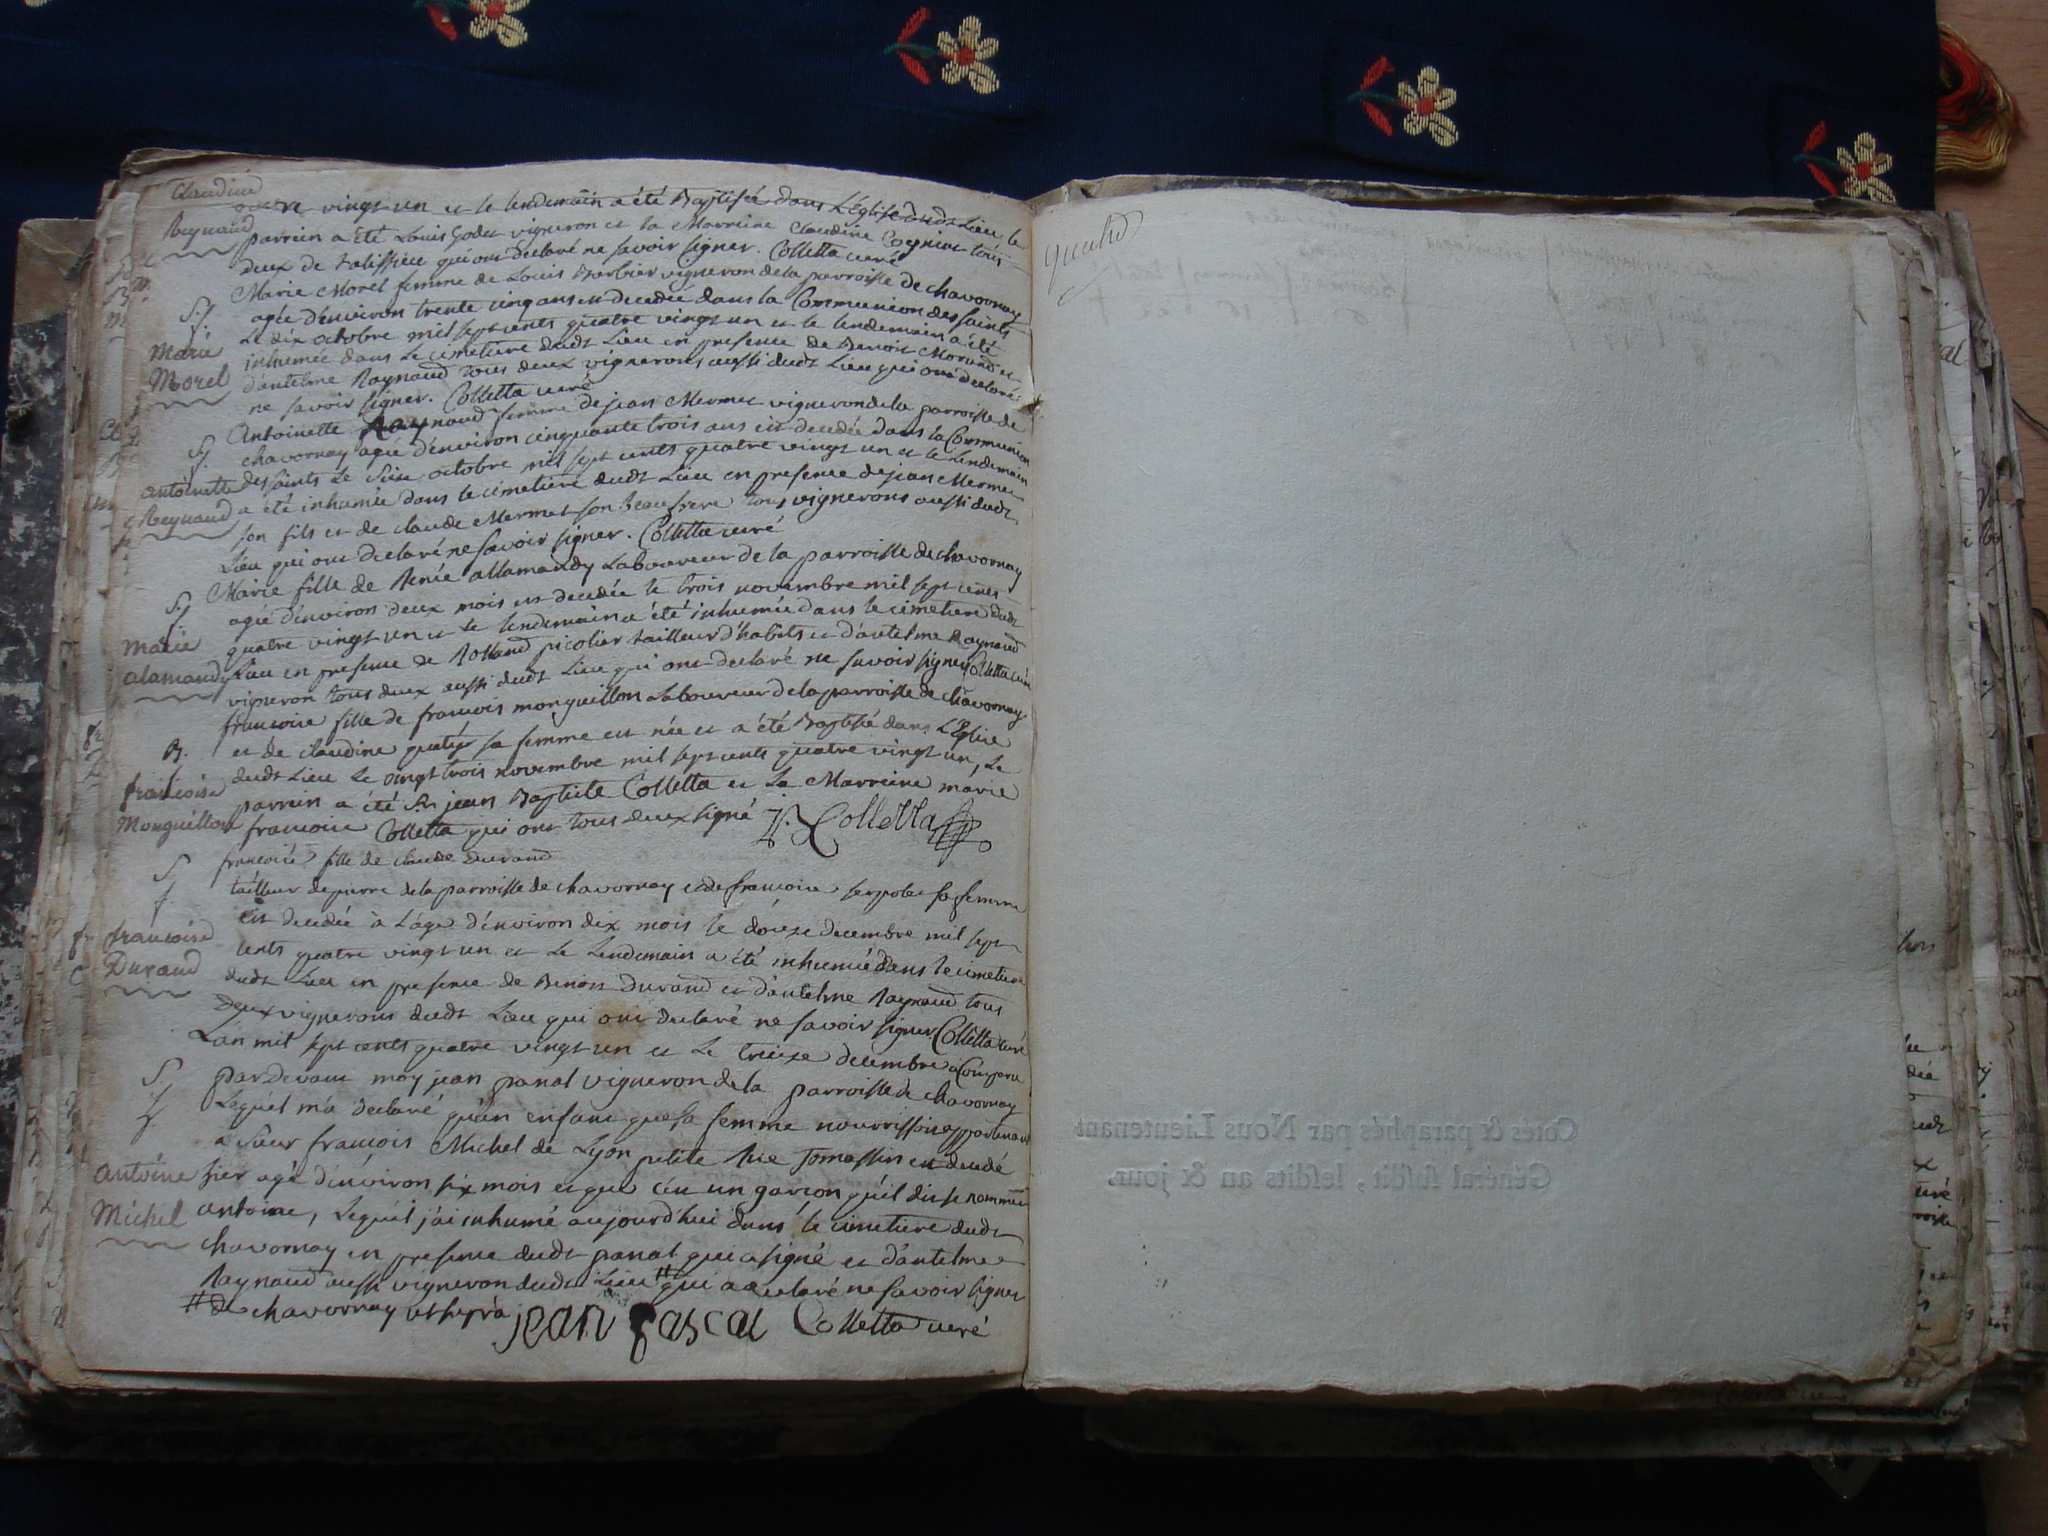 Claudine
Reynaud
vingt un et le lendemain a été Baptisée dans L'Eglise dudt Lieu le
parrein a été Louis Godet vigneron et la Marreine Claudine tous
deux de talissieu qui ont déclaré ne savoir signer. Colletta curé
S.f.
Marie
Morel
Marie Morel femme de Louis Barbier vigneron de la parroisse de chavornay
agée d'environ trente cinq ans est decedée dans la Communion des saints
Le dix octobre mil sept cents quatre vingt un et le lendemain a été
inhumée dans Le cimetiere dudt Lieu en presence de Benoit Morand et
d'antelme Raynaud tous deux vignerons aussi dudt Lieu qui ont declaré
ne savoir signer. Colletta curé
S.f.
antoinette
Reynaud
Antoinette Raynaud femme de jean Mermet vigneron de la parroisse de
chavornay agée d'environ cinquante trois ans est decedée dans la Communion
des saints Le seize octobre mil sept cents quatre vingt un et le Lendemain
a été inhumée dans le cimetiere dudt Lieu en presence de jean Mermet
son fils et de claude Mermet son Beaufrere tous vignerons aussi dudt
Lieu qui ont declaré ne savoir signer. Colletta curé
S.f
marie
alamandy
Marie fille de Renée allamandy Laboureur de la parroisse de chavornay
agée d'environ deux mois est decedée le trois novembre mil sept cents
quatre vingt un et le lendemain a été inhumée dans le cimetiere dudt
Lieu en presence de Rolland picolier tailleur d'habits et d'antelme Raynaud
vigneron tous deux aussi dudt Lieu qui ont declaré ne savoir signer Colletta curé
B.
françoise
Monguillon
francoise fille de francois monguillon Laboureur de la parroisse de chavornay
et de claudine sa femme est née et a été Baptisée dans L'Eglise
dudt Lieu Le vingt trois novembre mil sept cents quatre vingt un, Le
parrein a été Sr jean Baptiste Colletta et La Marreine marie
francoise Colletta qui ont tous deux signé Colletta
S.
f
francoise
Durand
francoise fille de claude Durand
tailleur de pierre de la parroisse de chavornay et de francoise sa femme
est decedée à L'age d'environ dix mois le douze decembre mil sept
cents quatre vingt un et Le Lendemain a été inhumée dans le cimetiere
dudt Lieu en presence de Benoit Durand et d'antelme Raynaud tous
Deux vignerons dudt Lieu qui ont declaré ne savoir signer Colletta curé
S.
f.
antoine
Michel
L'an mil sept cents quatre vingt un et Le treize decembre a Comparu
pardevant moy jean panal vigneron de la parroisse de chavornay
Lequel m'a declaré qu'un enfant que sa femme nourrissoit appartenant
à Sieur francois Michel de Lyon petite Rue Tomassin est decedé
hier agé d'environ six mois et que c'est un garcon qu'il dit se nommer
antoine, Lequel j'ai inhumé aujourd'hui dans le cimetiere dudt
chavornay en presence dudt panal qui a signé et d'antelme
Raynaud aussi vigneron dudt Lieu # qui a declaré ne savoir signer
# de chavornay
jean pascal Colletta curé
Cotés & paraphés par Nous Lieutenant
Général susdit, lesdits an & jour.